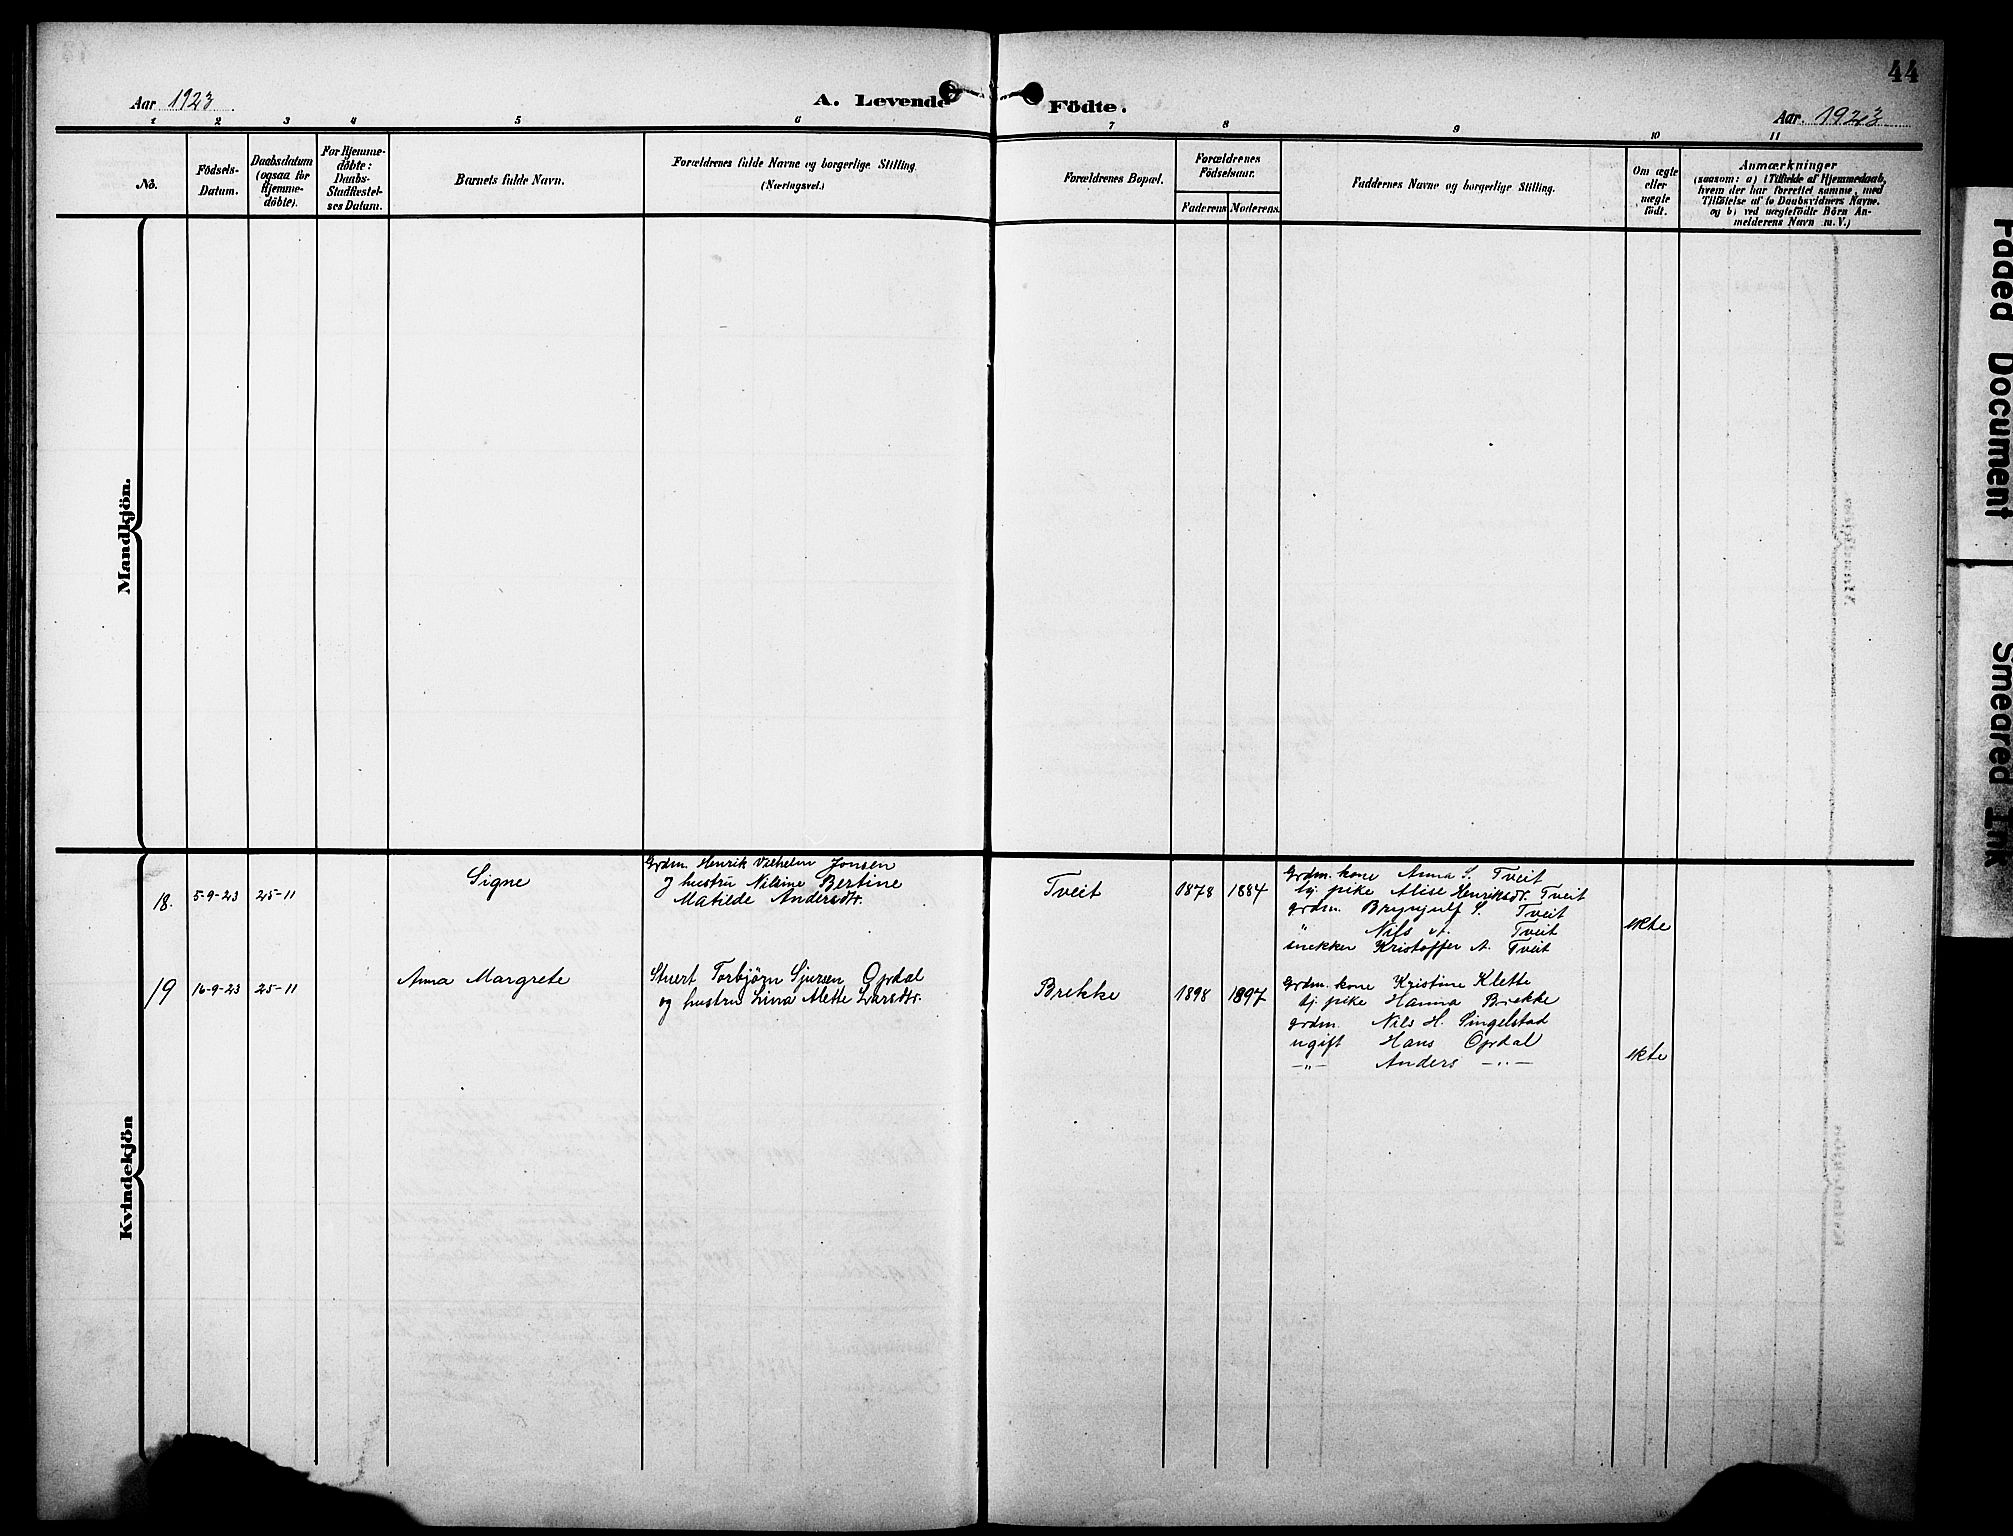 44
Aar 1923
A. Levende Födte.
Aar. 1923
1 2 3 4 5 6 7 8 9 10 11
No.
Födsels-
Datum.
Daabsdatum
(ogsaa for
Hjemme-
döbte).
For Hjemme-
döbte:
Daabs-
Stadfæstel-
ses Datum.
Barnets fulde Navn.
Forældrenes fulde Navne og borgerlige Stilling.
(Næringsvei.)
Forældrenes Bopæl.
Forældrenes
Födselsaar.
Faderens Moderens.
Faddernes Navne og borgerlige Stilling.
Om ægte
eller
uægte
födt.
Anmærkninger
(saasom: a) i Tilfælde af Hjemmedaab,
hvem der har forrettet samme, med
Tilföielse af to Daabsvidners Navne.
og b) ved uægtefödte Börn An-
melderens Navn m.V.)
Mandkjön.
Kvindekjön
18. 5-9-23 25-11 Signe
Grdm. Henrik Vilhelm Jonsen
og hustru Nilsine Bertine
Matilde Andersdtr.
Tveit 1878 1884
Grdm. kone Anna S. Tveit
tj. pike Alise Henriksdr. Tveit
grdm. Brynjulf S. Tveit
" Nils A. Tveit
snekker Kristoffer A. Tveit
ekte
19 16-9-23 25-11 Anna Margrete
Stuert Torbjørn Sjursen Opdal
og hustru Lina Mette Larsdtr.
Brekke 1898 1897
Grdm. kone Kristine Klette
tj. pike Hanna Brekke
grdm. Nils H. Singelstad
ugift Hans Opdal
—"— Anders —"—
ekte
Faded Document
Smeared Ink